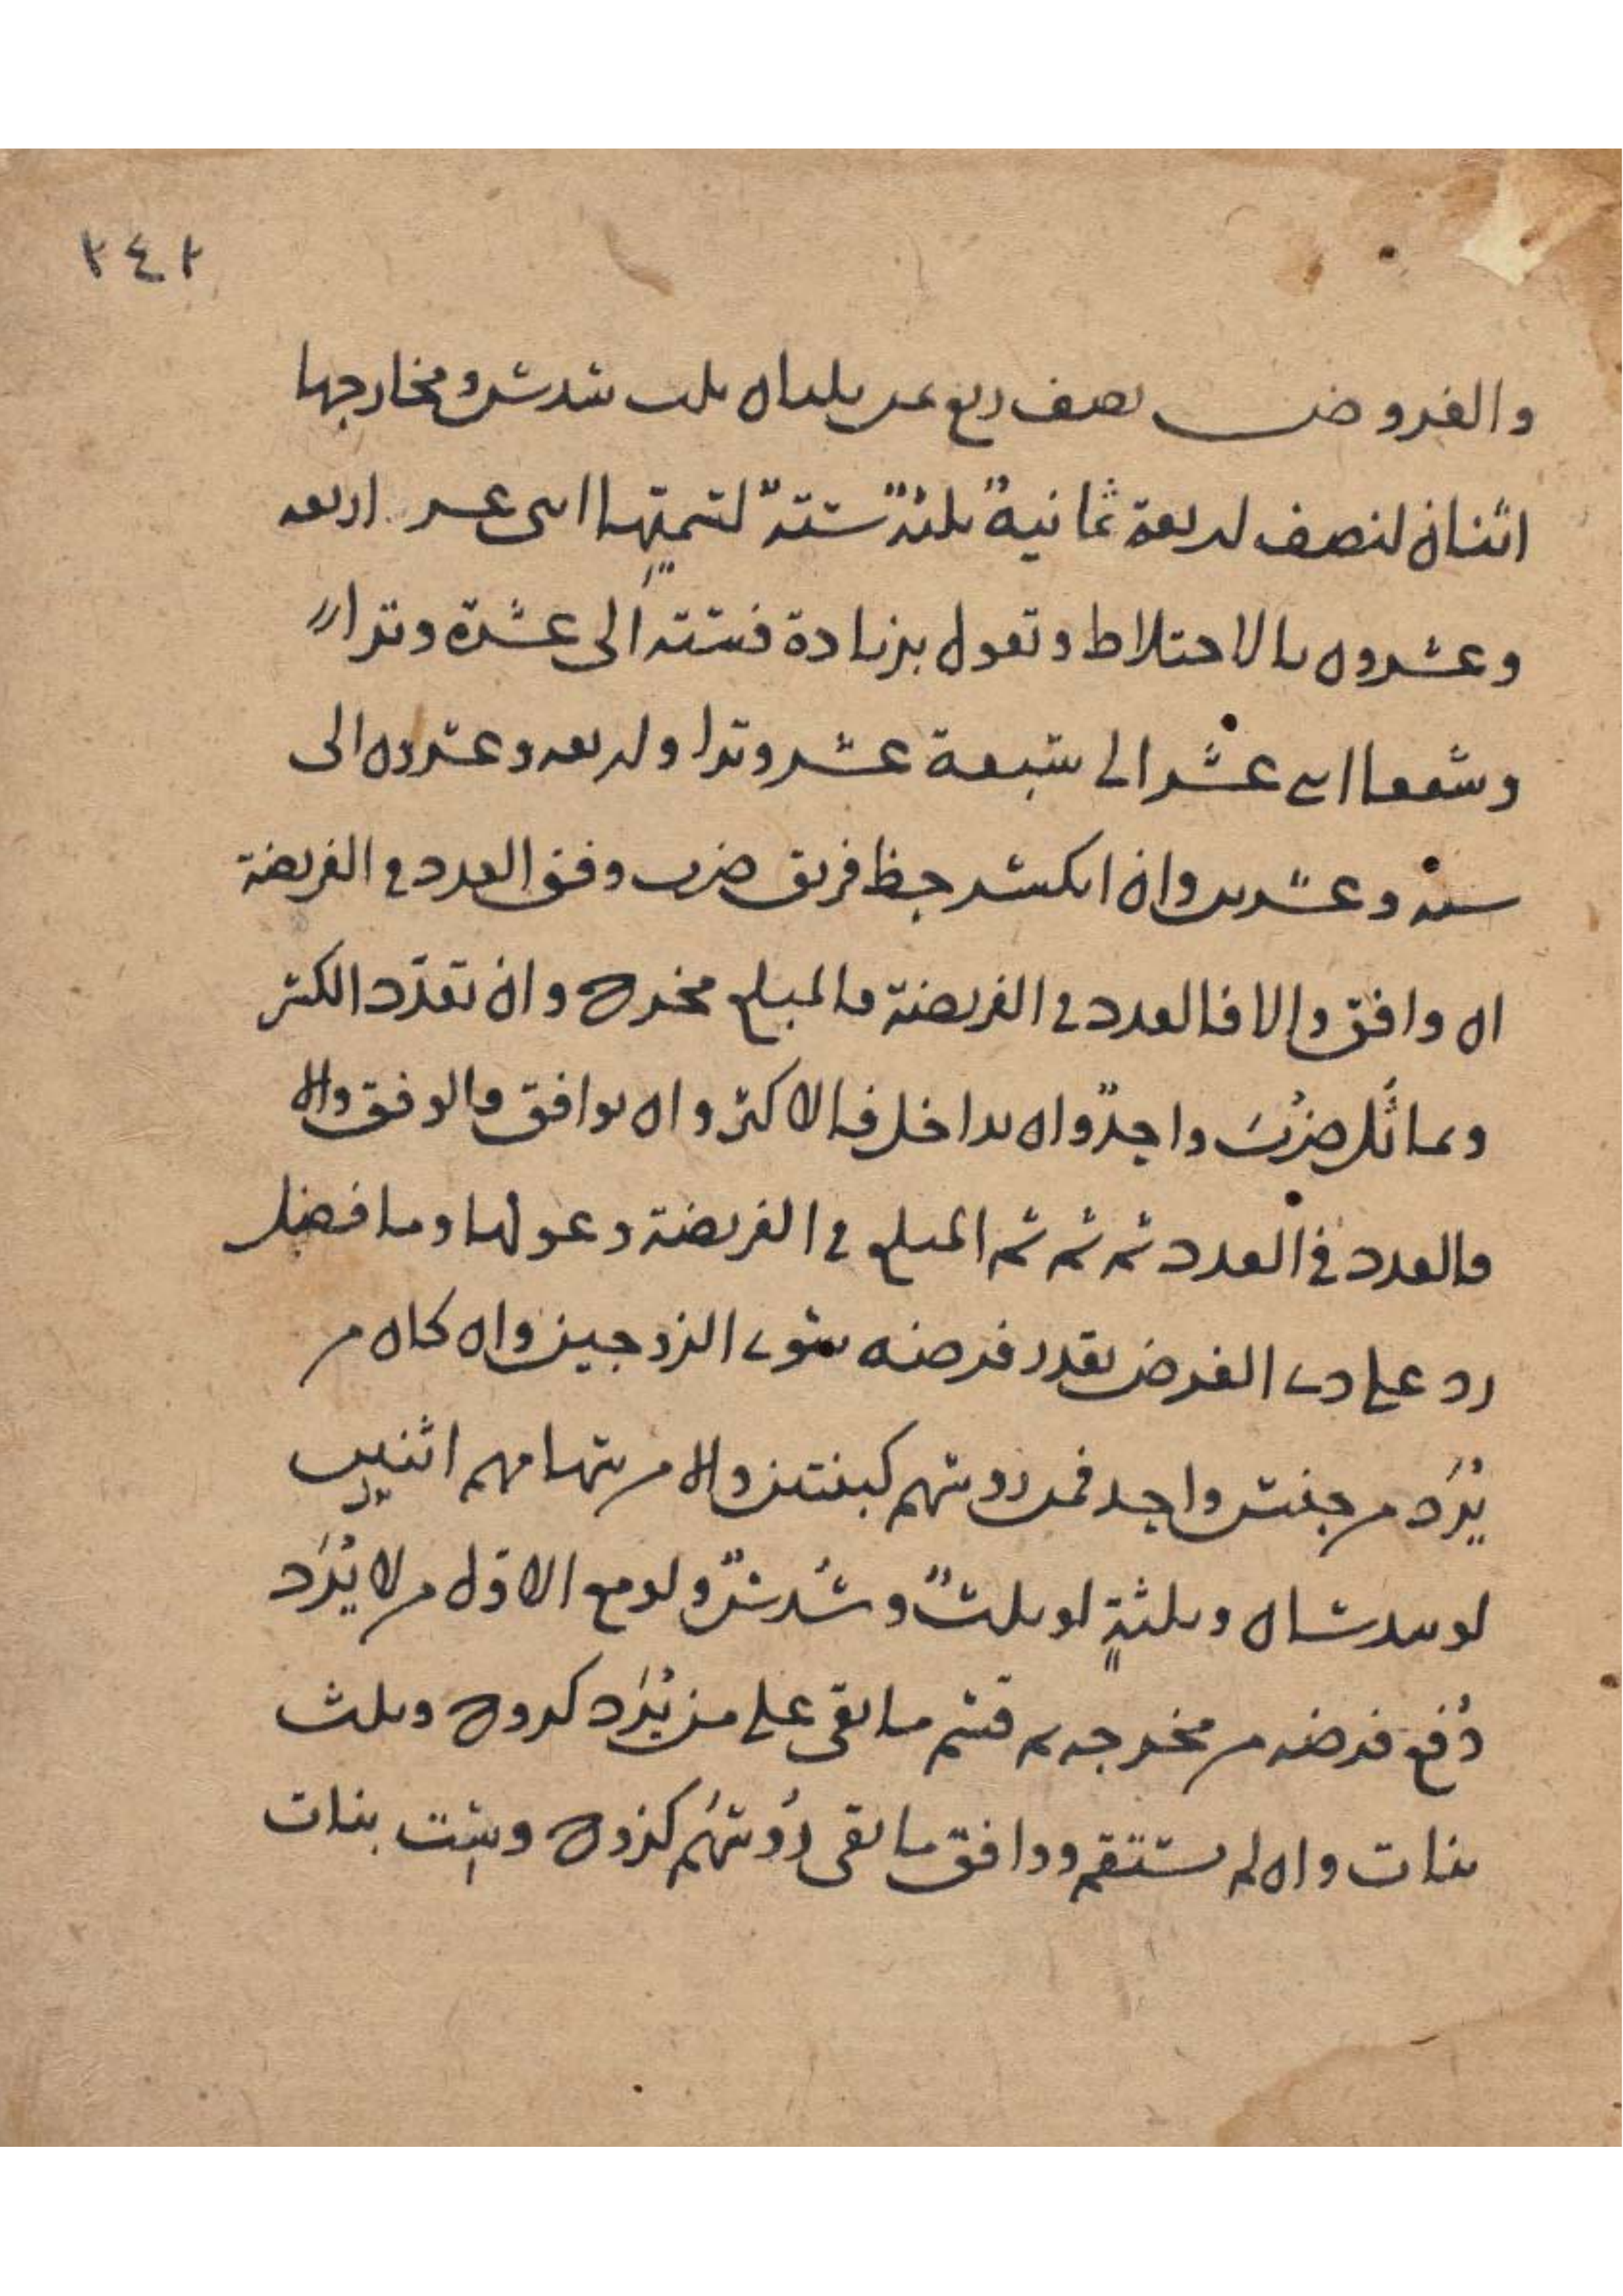 ٢٤٢
والفروض نصف ربع ثمن ثلثان ثلث سدس ومخارجها
اثنان لنصف اربعة ثمانية ثلثة ستة لسميتها اثنى عشر اربعه
وعشرون بالاختلاط وتعول بزيادة فستته الى عشرة وترا
وشفعا اثنى عشر الى سبعة عشر وترا واربعه وعشرون الى
سبعه وعشرين وان انكسر حظ فريق ضرب وفق العدد في الفريضة
ان وافق والا فالعدد في الفريضة فالمبلغ مخرجه وان تعدد الكسر
وتماثل ضرب واحد وان تداخل فالاكثر وان توافق فالوفق والا
فالعدد في العدد ثم ثم ثم المبلغ في الفريضة وعولها وما فضل
رد على ذى الفرض بقدر فرضه سوى الزوجين وان كان من
يرد من جنس واحد فمن روسهم كبنتين والا من سهامهم اثنين
لو سدسان وثلثة لو ثلث وسدس ولو مع الاول من لا يرد
دفع فرضه من مخرجه ثم قسم ما بقى على من يرد كزوج وثلث
بنات وان لم يستقم ووافق ما بقى روسهم كزوج وست بنات